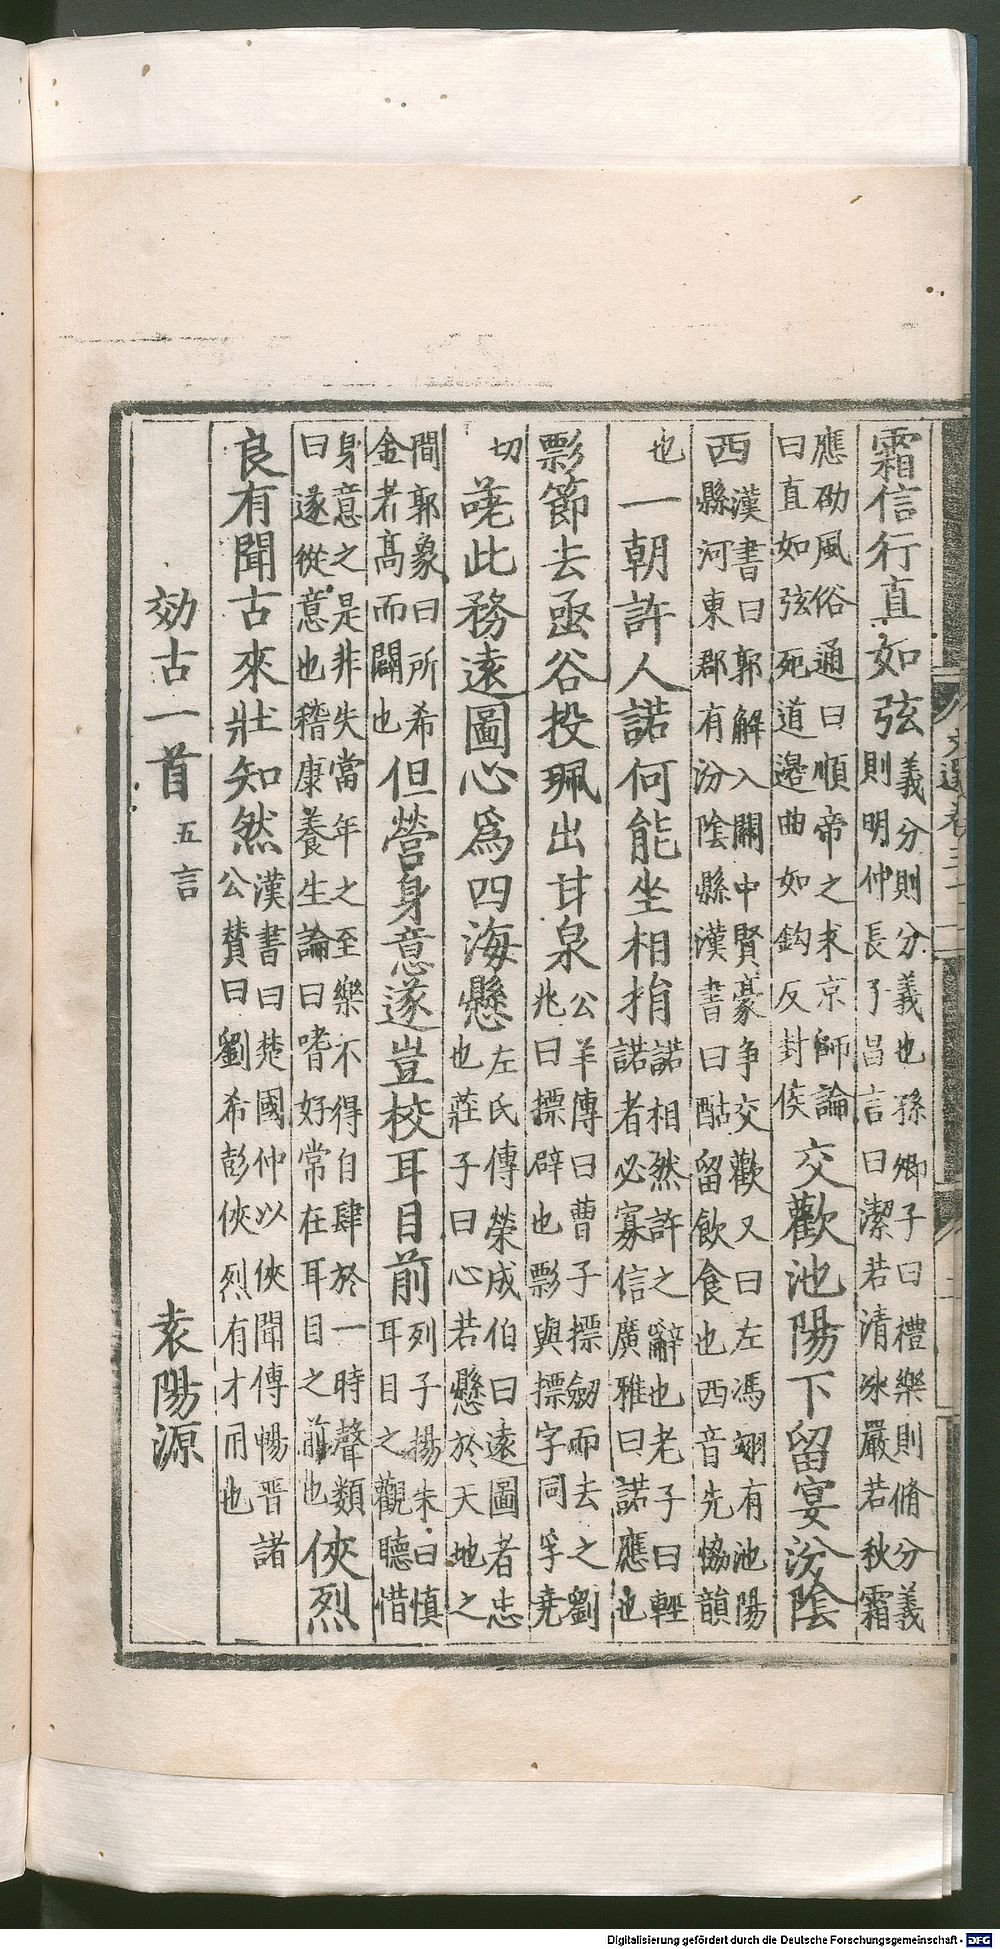 霜信行直如弦義分則分義也孫卿子曰禮樂則脩分義則明仲長子昌言曰潔若清冰嚴若秋霜
應劭風俗通曰順帝之末京師論曰直如弦死道邊曲如鈎反封侯交歡池陽下留宴汾陰
西漢書曰郭解入關中賢豪爭交歡又曰左馮翊有池陽縣河東郡有汾陰縣漢書曰酤留飲食也西音先恊韻
也一朝許人諾何能坐相捐諾相然許之辭也老子曰輕諾者必寡信廣雅曰諾應也
彯節去函谷投珮出甘泉公羊傳曰曹子摽劒而去之劉兆曰摽辟也彯與摽字同孚堯
切嗟此務遠圖心爲四海懸左氏傳榮成伯曰遠圖者忠也莊子曰心若懸於天地之
間郭象曰所希金者高而闊也但營身意遂豈校耳目前列子揚朱曰慎耳目之觀聽惜
身意之是非失當年之至樂不得自肆於一時聲類曰遂從意也稽康養生論曰嗜好常在耳目之前也俠烈
良有聞古來壯知然漢書曰楚國仲以俠聞傳暢晉諸公贊曰劉希彭俠烈有才用也
効古一首五言 袁陽源
Digitalisierung gefördert durch die Deutsche Forschungsgemeinschaft - DFG